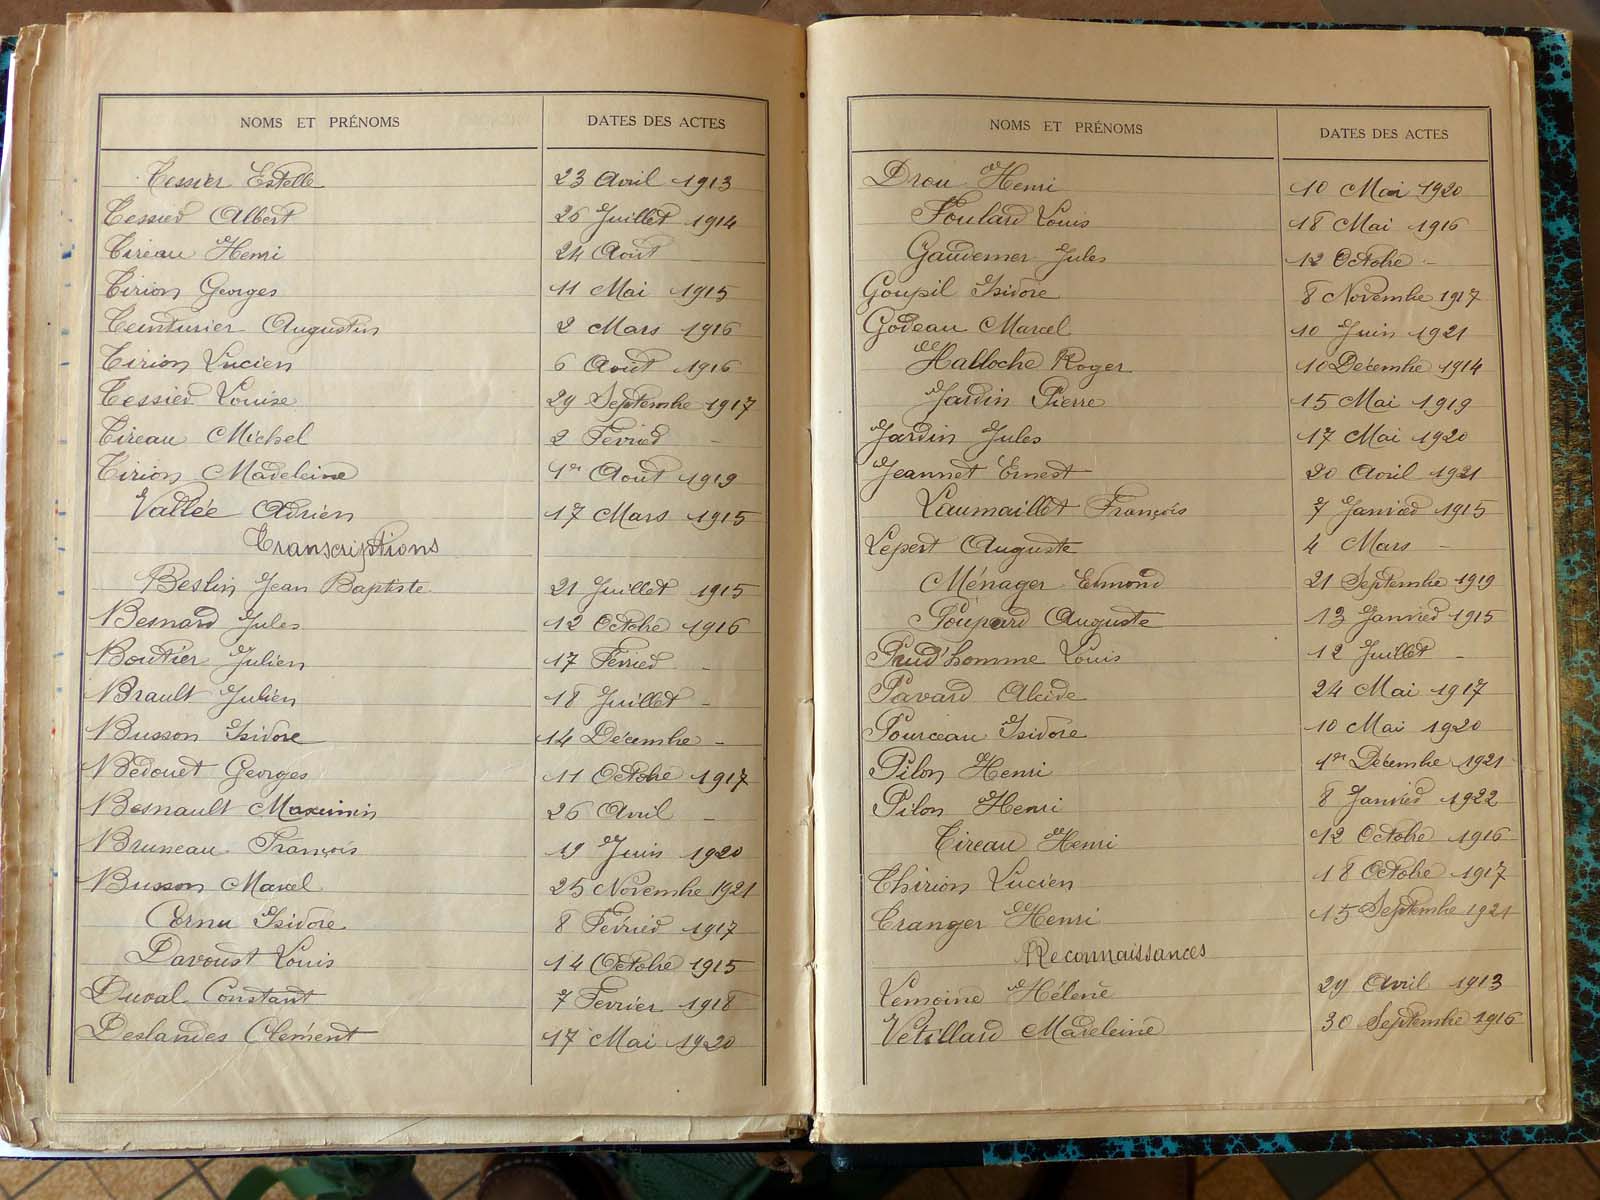 NOMS ET PRÉNOMS DATES DES ACTES
Tessier Estelle 23 Avril 1913
Tessier Albert 26 Juillet 1914
Tireau Henri 24 Août -
Tirion Georges 11 Mai 1915
Teinturier Augustin 2 Mars 1916
Tirion Lucien 6 Août 1916
Tessier Louise 29 Septembre 1917
Tireau Michel 2 Février -
Tirion Madeleine 1er Août 1919
Vallée Adrien 17 Mars 1915
Transcriptions
Beslin Jean Baptiste 21 Juillet 1915
Besnard Jules 12 Octobre 1916
Boutier Julien 17 Février -
Brault Julien 18 Juillet -
Busson Isidore 14 Décembre -
Bedouet Georges 11 Octobre 1917
Besnault Maximin 26 Avril -
Bruneau François 19 Juin 1920
Busson Marcel 25 Novembre 1921
Cornu Isidore 8 Février 1917
Davoust Louis 14 Octobre 1915
Duval Constant 7 Fevrier 1918
Deslandes Clément 17 Mai 1920
NOMS ET PRÉNOMS DATES DES ACTES
Drou Henri 10 Mai 1920
Foulard Louis 18 Mai 1916
Gaudemer Jules 12 Octobre -
Goupil Isidore 8 Novembre 1917
Godeau Marcel 10 Juin 1921
Halloche Roger 10 Décembre 1914
Jardin Pierre 15 Mai 1919
Jardin Jules 17 Mai 1920
Jeannet Ernest 20 Avril 1921
Laumaillet François 7 Janvier 1915
Lepert Auguste 4 Mars -
Ménager Edmond 21 Septembre 1919
Poupard Auguste 13 Janvier 1915
Prud'homme Louis 12 Juillet -
Pavard Alcide 24 Mai 1917
Pourceau Isidore 10 Mai 1920
Pilon Henri 1er Décembre 1921
Pilon Henri 8 Janvier 1922
Tireau Henri 12 Octobre 1916
Thirion Lucien 18 Octobre 1917
Tranger Henri 15 Septembre 1921
Reconnaissances
Lemoine Hélène 29 Avril 1913
Vetillard Madeleine 30 Septembre 1916